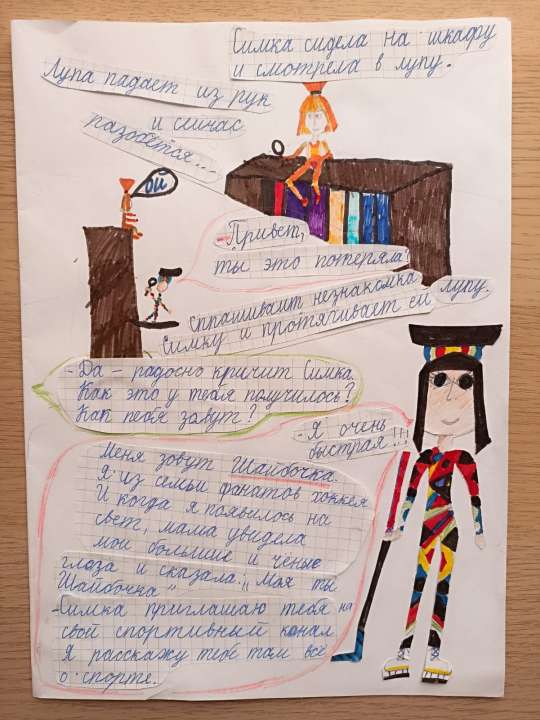 Симка сидела на шкафу
и смотрела в лупу.
Лупа падает из рук
и сейчас
разобьётся...
ОЙ
-Привет,
ты это потеряла?
спрашивает незнакомка
Симку и протягивает ей лупу.
- Да - радосно кричит Симка
Как это у тебя получилось?
Как тебя зовут?
- Я очень
быстрая!!!
Меня зовут Шайбочка.
Я из семьи фанатов хоккея
И когда я появилось на
свет, мама увидела
мои большие и чёные
глоза и сказала: „Моя ты
Шайбочка"
-Симка приглашаю тебя на
свой спортивный канал
Я расскажу тебе там всё
о спорте.